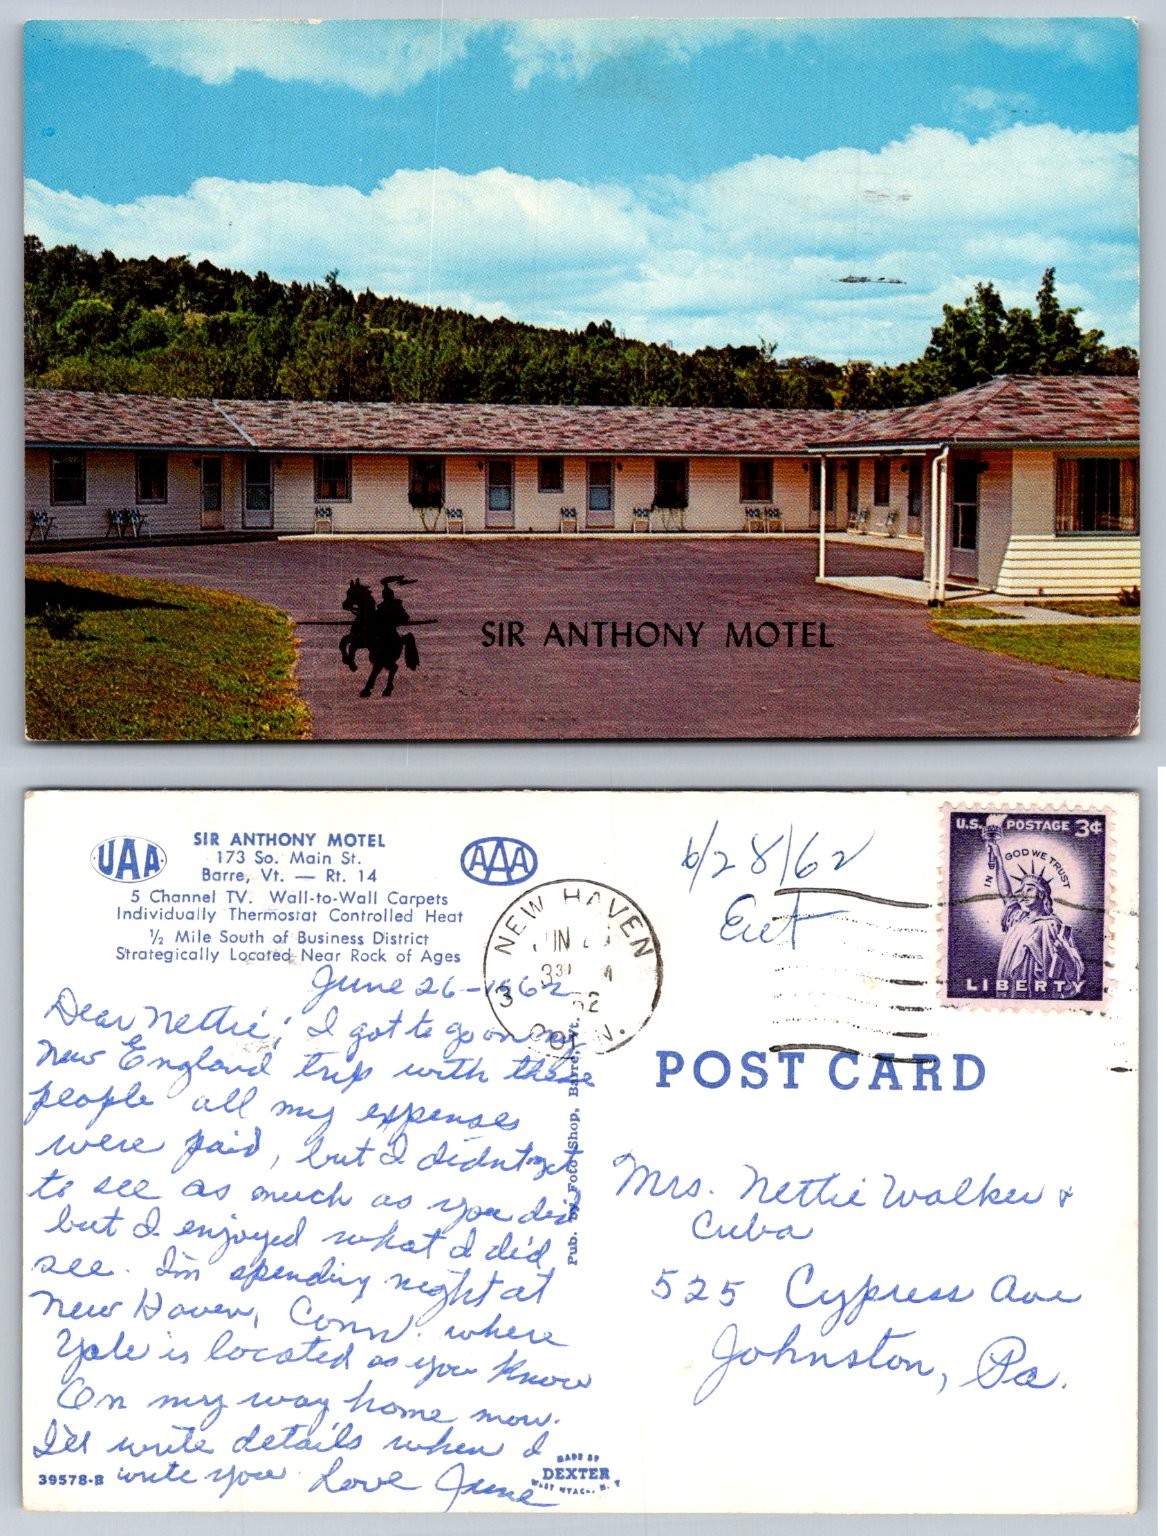 SIR ANTHONY MOTEL
UAA
SIR ANTHONY MOTEL
173 So. Main St.
Barre, Vt. — Rt. 14
AAA
5 Channel TV. Wall-to-Wall Carpets
Individually Thermostat Controlled Heat
½ Mile South of Business District
Strategically Located Near Rock of Ages
June 26-1962
Dear Nettie; I got to go on my
New England trip with these
people all my expenses
were paid, but I didn't get
to see as much as you did
but I enjoyed what I did
see. I'm spending night at
New Haven, Conn. where
Yale is located as you know
On my way home now.
I'll write details when I
write you. Love June
39578-B
MADE BY
DEXTER
WEST NYACK, N. Y.
Pub. by Foto Shop, Barre, Vt.
NEW HAVEN
JUN
3
CONN.
6/28/62
U.S. POSTAGE 3¢
IN GOD WE TRUST
LIBERTY
POST CARD
Mrs. Nettie Walker &
Cuba
525 Cypress Ave
Johnston, Pa.